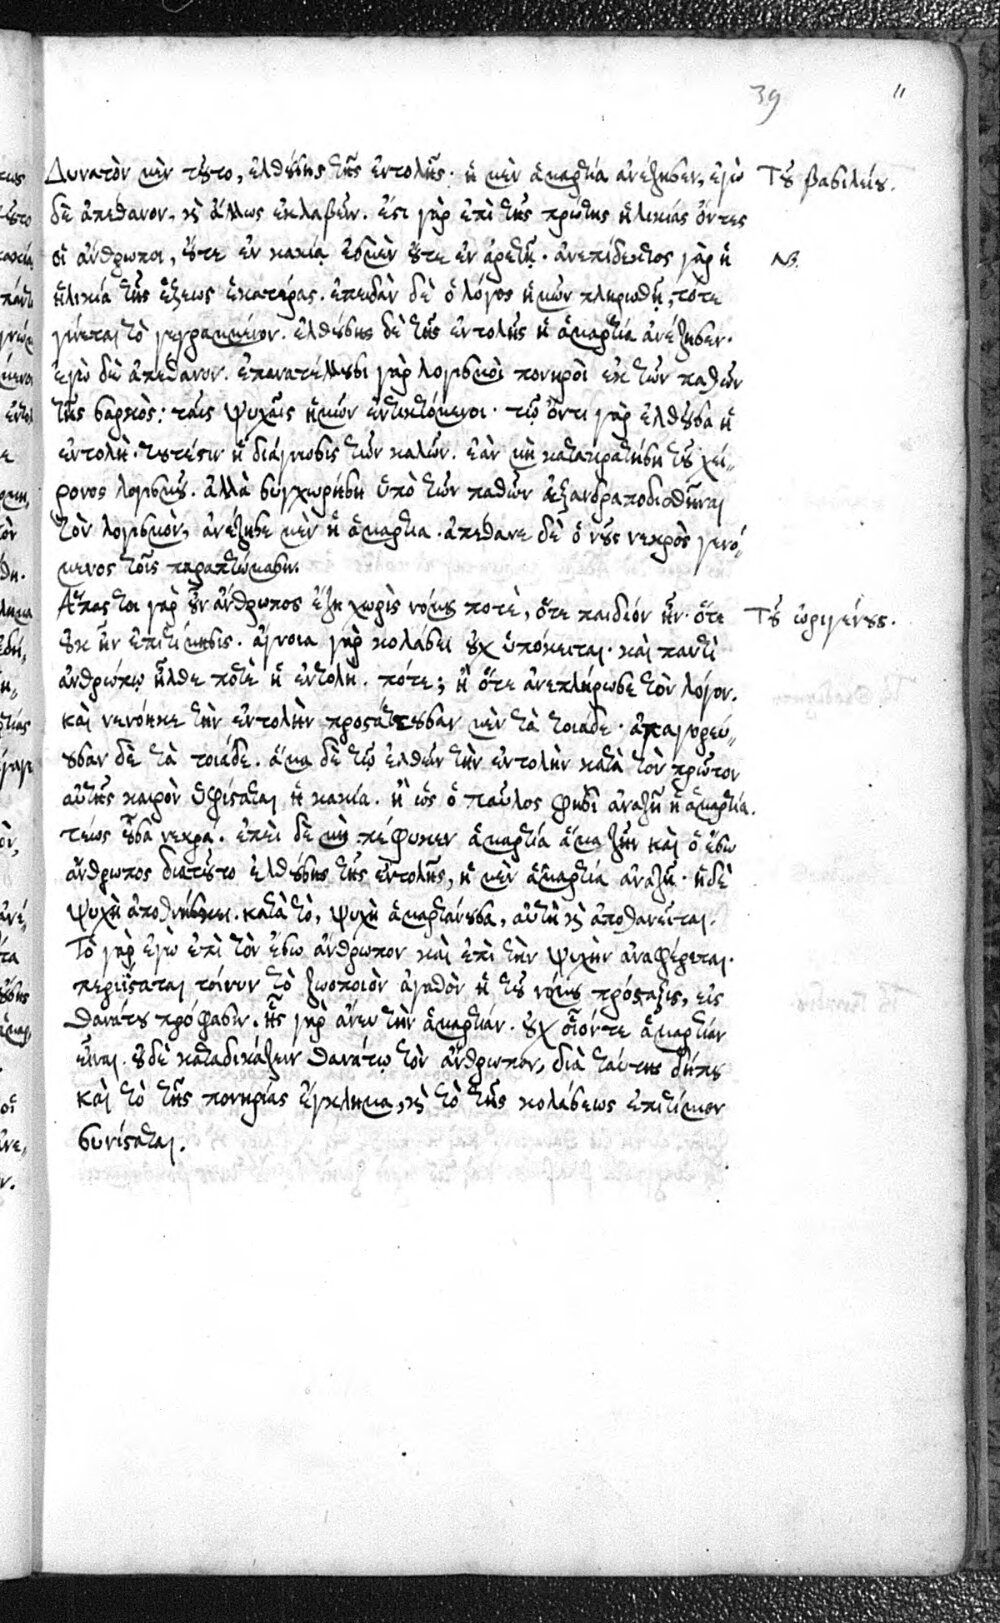 39 11
Δυνατὸν μὲν τοῦτο, ἐλθούσης τῆς ἐντολῆς· ἡ μὲν ἁμαρτία ἀνέζησεν, ἐγὼ
Τοῦ βασιλείου.
δὲ ἀπέθανον, καὶ ἄλλως ἐκλαβεῖν. ἔτι γὰρ ἐπὶ τῆς πρώτης ἡλικίας ὄντες
οἱ ἄνθρωποι, οὔτε ἐν κακίᾳ ἐσμὲν οὔτε ἐν ἀρετῇ· ἀνεπίδεκτος γὰρ ἡ
ἡλικία τῆς ἕξεως ἑκατέρας. ἐπειδὰν δὲ ὁ λόγος ἡμῶν πληρωθῇ, τότε
γίνεται τὸ γεγραμμένον. ἐλθούσης δὲ τῆς ἐντολῆς ἡ ἁμαρτία ἀνέζησεν·
ἐγὼ δὲ ἀπέθανον. ἐπανατέλλουσι γὰρ λογισμοὶ πονηροὶ ἐκ τῶν παθῶν
τῆς σαρκὸς: ταῖς ψυχαῖς ἡμῶν ἐντικτόμενοι· τῷ ὄντι γὰρ ἐλθοῦσα ἡ
ἐντολὴ· τουτέστιν ἡ διάγνωσις τῶν καλῶν. ἐὰν μὴ κατακρατήσῃ τοῦ χεί-
ρονος λογισμοῦ. ἀλλὰ συγχωρήσῃ ὑπὸ τῶν παθῶν ἐξανδραποδισθῆναι
τὸν λογισμὸν, ἀνέζησε μὲν ἡ ἁμαρτία· ἀπέθανε δὲ ὁ νοῦς νεκρὸς γενό-
μενος τοῖς παραπτώμασιν.
Ἅπας τοι γὰρ οὖν ἄνθρωπος ἔζη χωρὶς νόμου ποτὲ, ὅτε παιδίον ἦν· ὅτε
Τοῦ ὠριγένους.
οὐκ ἦν ἐπιτίμησις. ἄγνοια γὰρ κολάσει οὐχ ὑπόκειται· καὶ παντὶ
ἀνθρώπῳ ἦλθε ποτὲ ἡ ἐντολὴ. πότε; ἢ ὅτε ἀνεπλήρωσε τὸν λόγον.
καὶ νενόηκε τὴν ἐντολὴν προστάττουσαν μὲν τὰ τοιάδε· ἀπαγορεύ-
ουσαν δὲ τὰ τοιάδε. ἅμα δὲ τῷ ἐλθεῖν τὴν ἐντολὴν κατὰ τὸν πρῶτον
αὐτῆς καιρὸν ὑφίσταται ἡ κακία. ἢ ὡς ὁ παῦλος φησὶ ἀναζῇ ἡ ἁμαρτία.
τέως οὖσα νεκρά. ἐπεὶ δὲ μὴ πέφυκεν ἁμαρτία ἅμα ζῆν καὶ ὁ ἔσω
ἄνθρωπος διατοῦτο ἐλθούσης τῆς ἐντολῆς, ἡ μὲν ἁμαρτία ἀναζῇ· ἡ δὲ
ψυχὴ ἀποθνήσκει. κατὰ τὸ, ψυχὴ ἁμαρτάνουσα, αὐτὴ καὶ ἀποθανεῖται.
Τὸ γὰρ ἐγὼ ἐπὶ τὸν ἔσω ἄνθρωπον καὶ ἐπὶ τὴν ψυχὴν ἀναφέρεται.
περιΐσταται τοίνυν τὸ ζωοποιὸν ἀγαθὸν ἡ τοῦ νόμου πρόσταξις, εἰς
θανάτου πρόφασιν. ἧς γὰρ ἄνευ τὴν ἁμαρτίαν· οὐχ οἷόντε ἁμαρτίαν
εἶναι. οὐδὲ καταδικάζειν θανάτῳ τὸν ἄνθρωπον, διὰ ταύτης δήπου
καὶ τὸ τῆς πονηρίας ἔγκλημα, καὶ τὸ τῆς κολάσεως ἐπιτίμιον
συνίσταται.